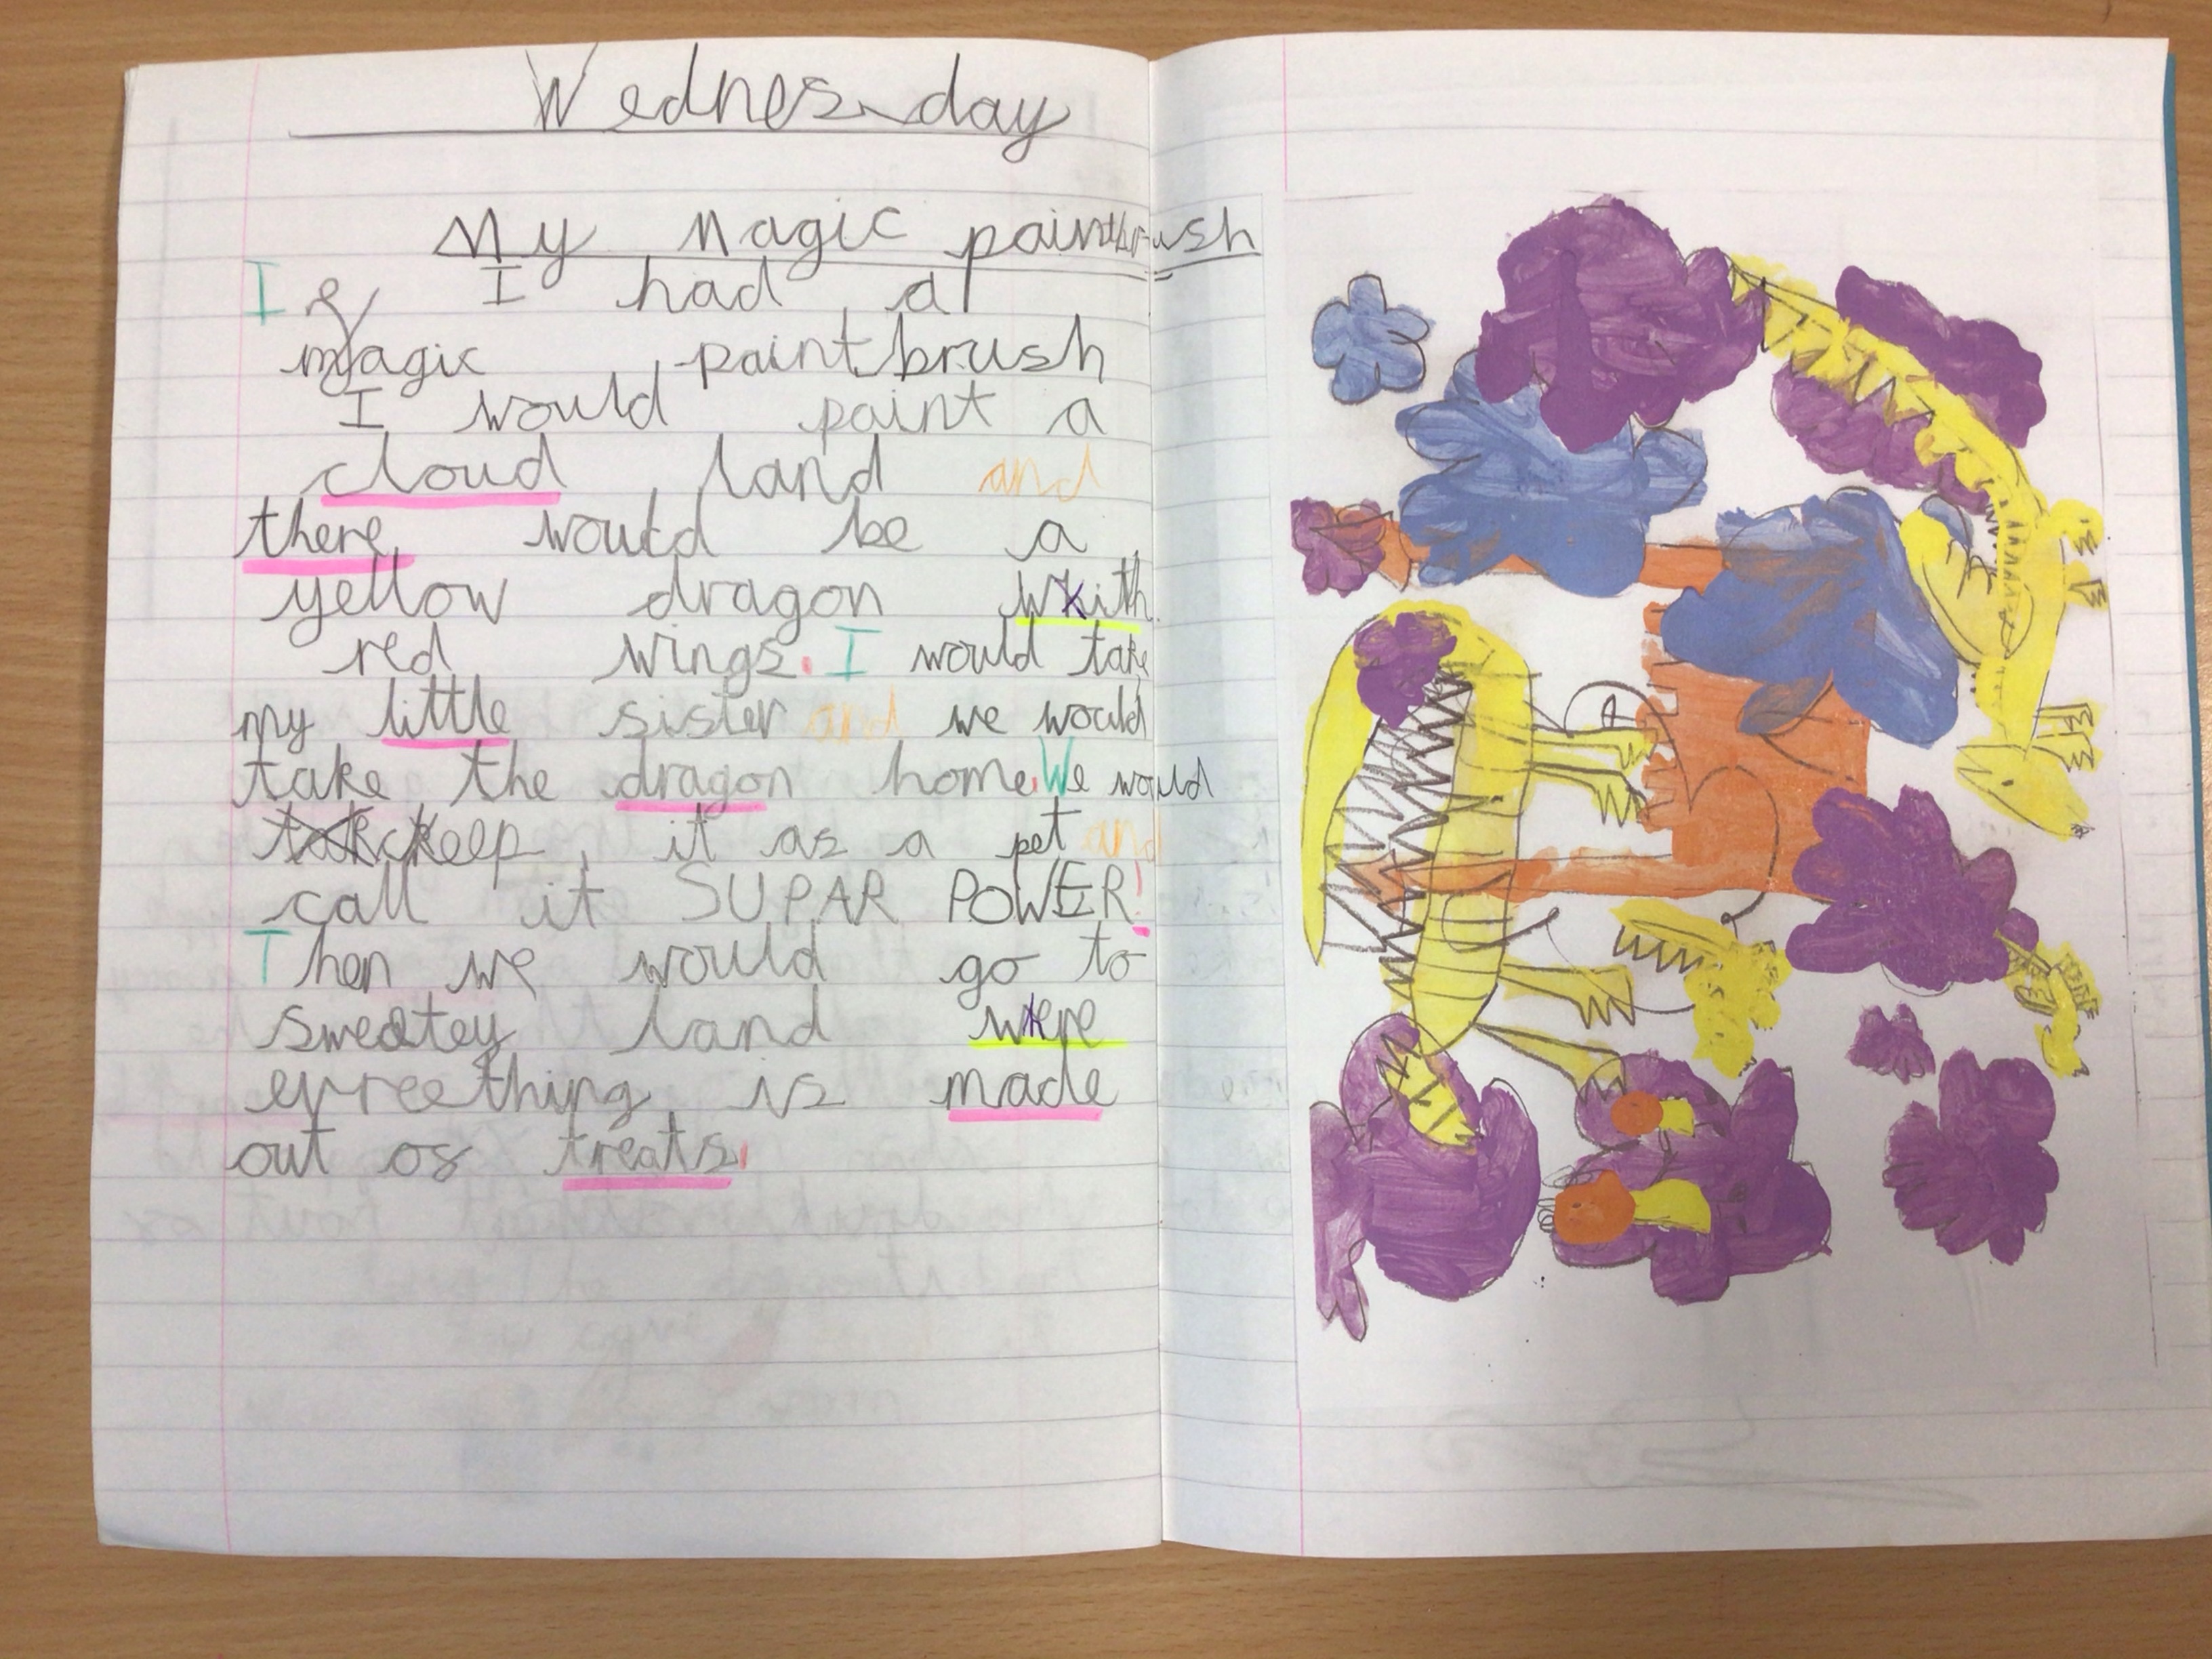 Wednesday
My Magic paintbrush
If I had a
magic paintbrush
I would paint a
cloud land and
there would be a
yellow dragon with
red wings. I would take
my little sister and we would
take the dragon home. We would
keep it as a pet and
call it SUPAR POWER!
Then we would go to
sweatey land were
evreething is made
out os treats.